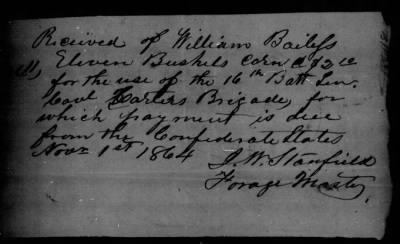 Received of William Bailess
(11) Eleven Bushels Corn
for the use of the 16th Batt Ten.
Cavl Carters Brigade, for
which payment is due
from the Confederate States
Novr 1st 1864
J. W. Stanfield
Forage Master